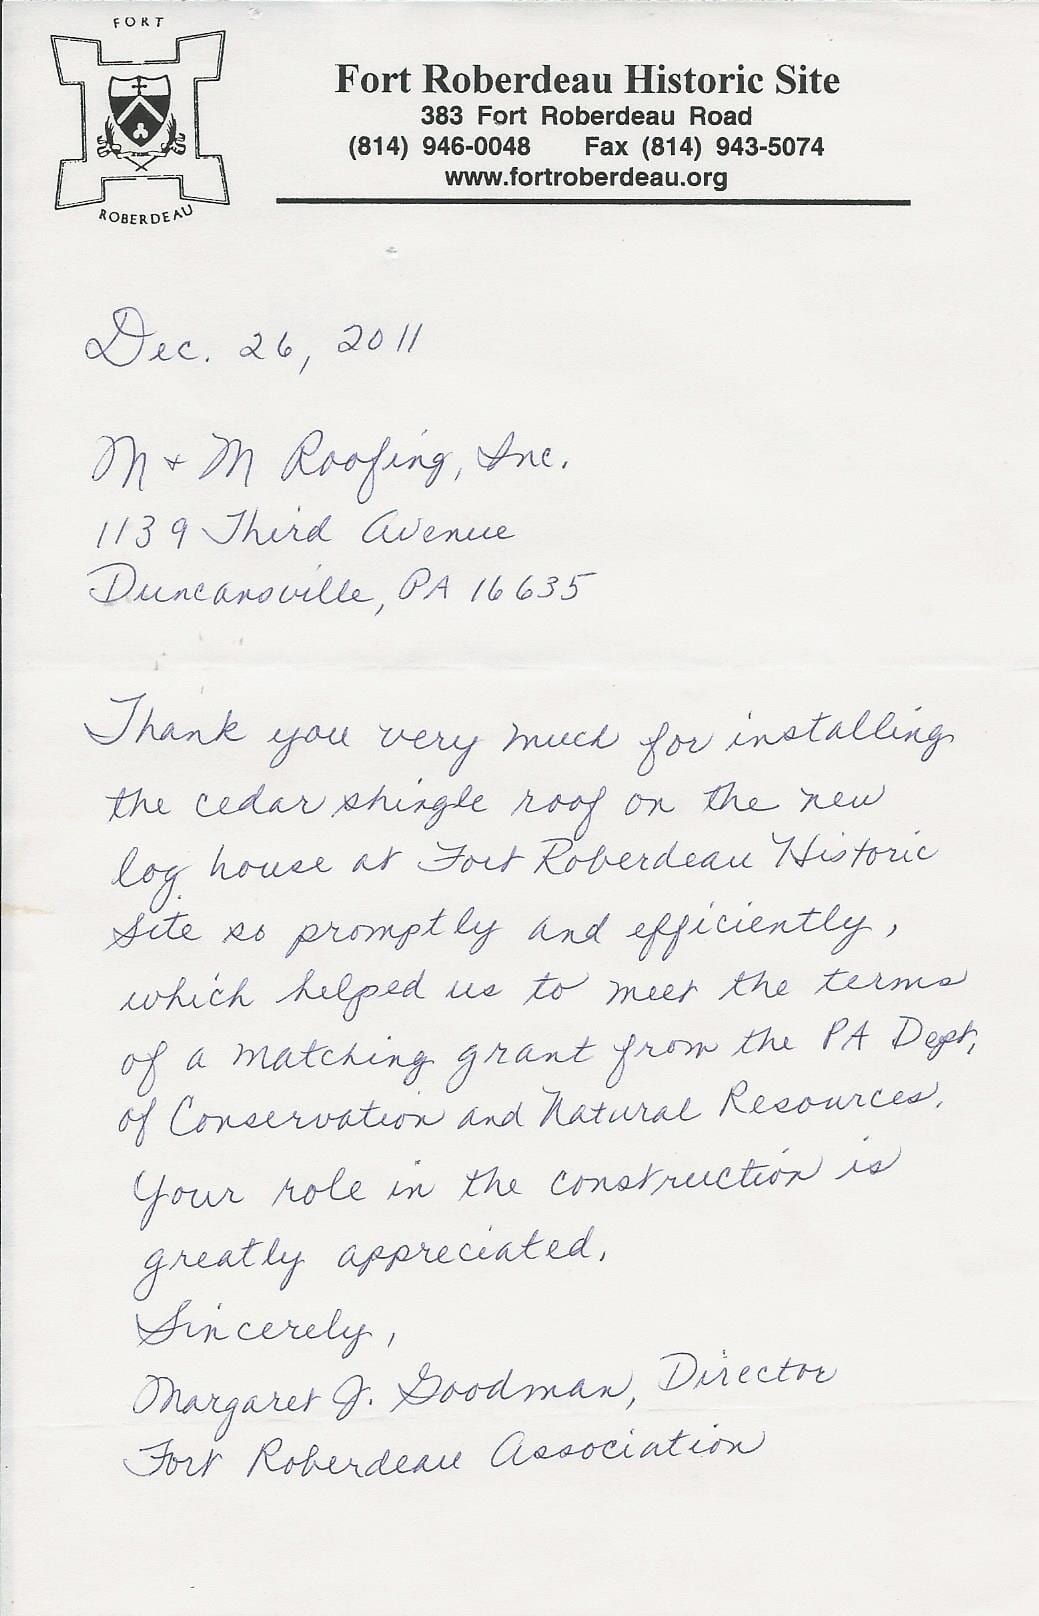 FORT
ROBERDEAU
Fort Roberdeau Historic Site
383 Fort Roberdeau Road
(814) 946-0048 Fax (814) 943-5074
www.fortroberdeau.org
Dec. 26, 2011
M + M Roofing, Inc.
1139 Third Avenue
Duncansville, PA 16635
Thank you very much for installing
the cedar shingle roof on the new
log house at Fort Roberdeau Historic
Site so promptly and efficiently,
which helped us to meet the terms
of a matching grant from the PA Dept.
of Conservation and Natural Resources.
Your role in the construction is
greatly appreciated.
Sincerely,
Margaret J. Goodman, Director
Fort Roberdeau Association